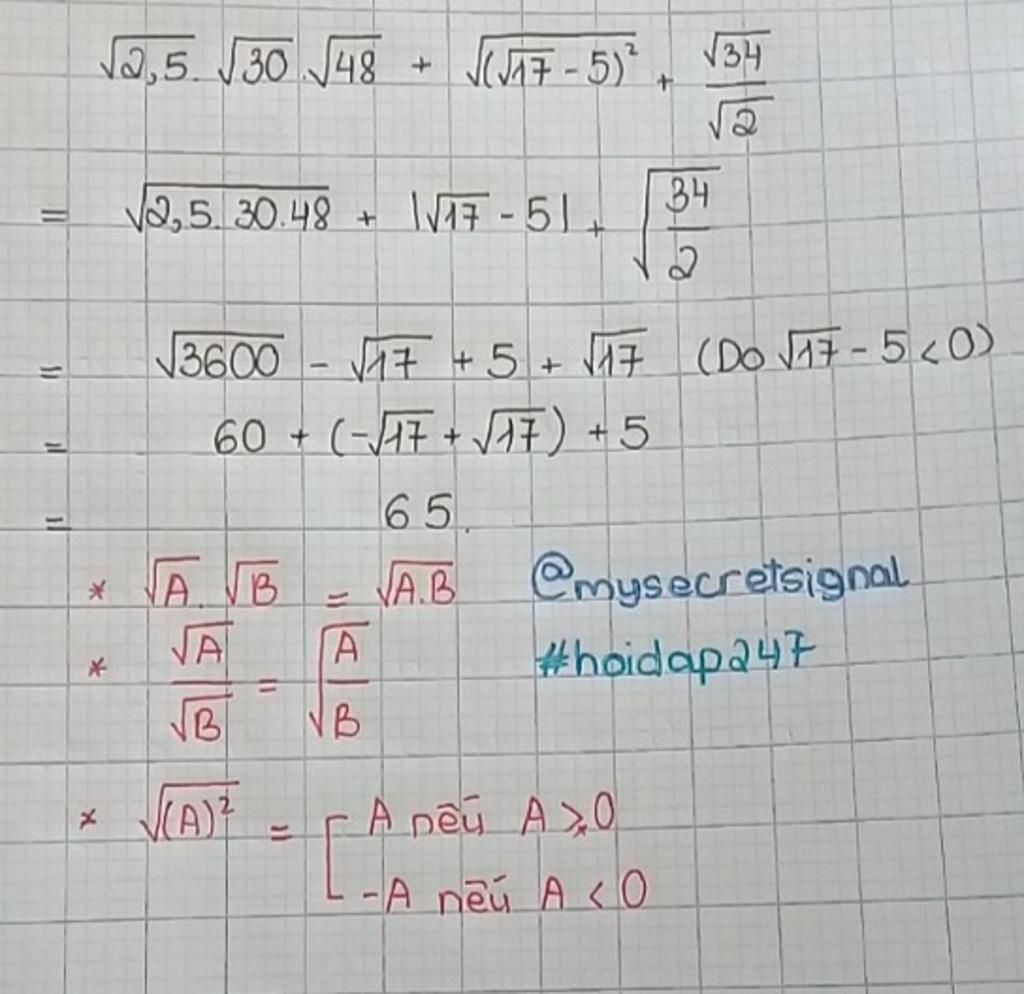 √2,5 . √30 . √48 + √(√17 - 5)² + √34/√2
= √2,5.30.48 + |√17 - 5| + √34/2
= √3600 - √17 + 5 + √17 (Do √17 - 5 < 0)
= 60 + (-√17 + √17) + 5
= 65.
* √A . √B = √A.B
@mysecretsignal
* √A/√B = √A/B
#hoidap247
* √(A)² = [ A nếu A ⩾ 0
-A nếu A < 0